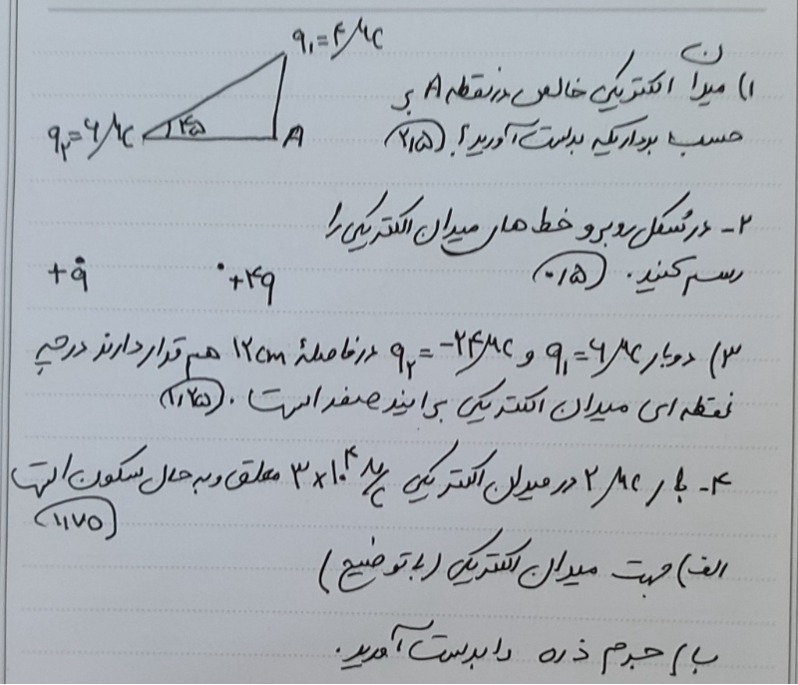 q₁ = ۴ μC
ن
۱) میدا الکتریکی خالص در نقطه A بر
q₂ = ۶ μC
۴۵
A
حسب بردار یکه بدست آورید؟ (۲,۵)
۲- در شکل روبرو خط های میدان الکتریکی را
رسم کنید. (۰,۵)
+q
+۴q
۳) دوبار q₁ = ۶ μC و q₂ = -۲۴ μC در فاصلهٔ ۱۲ cm هم قرار دارند در چه
نقطه ای میدان الکتریکی برایند صفر است. (۱,۲۵)
۴- بار ۲ μC در میدان الکتریکی ۳×۱۰⁴ N/C معلق و به حال سکون است
(۱,۷۵)
الف) جهت میدان الکتریکی (با توضیح)
ب) جرم ذره را بدست آورید.